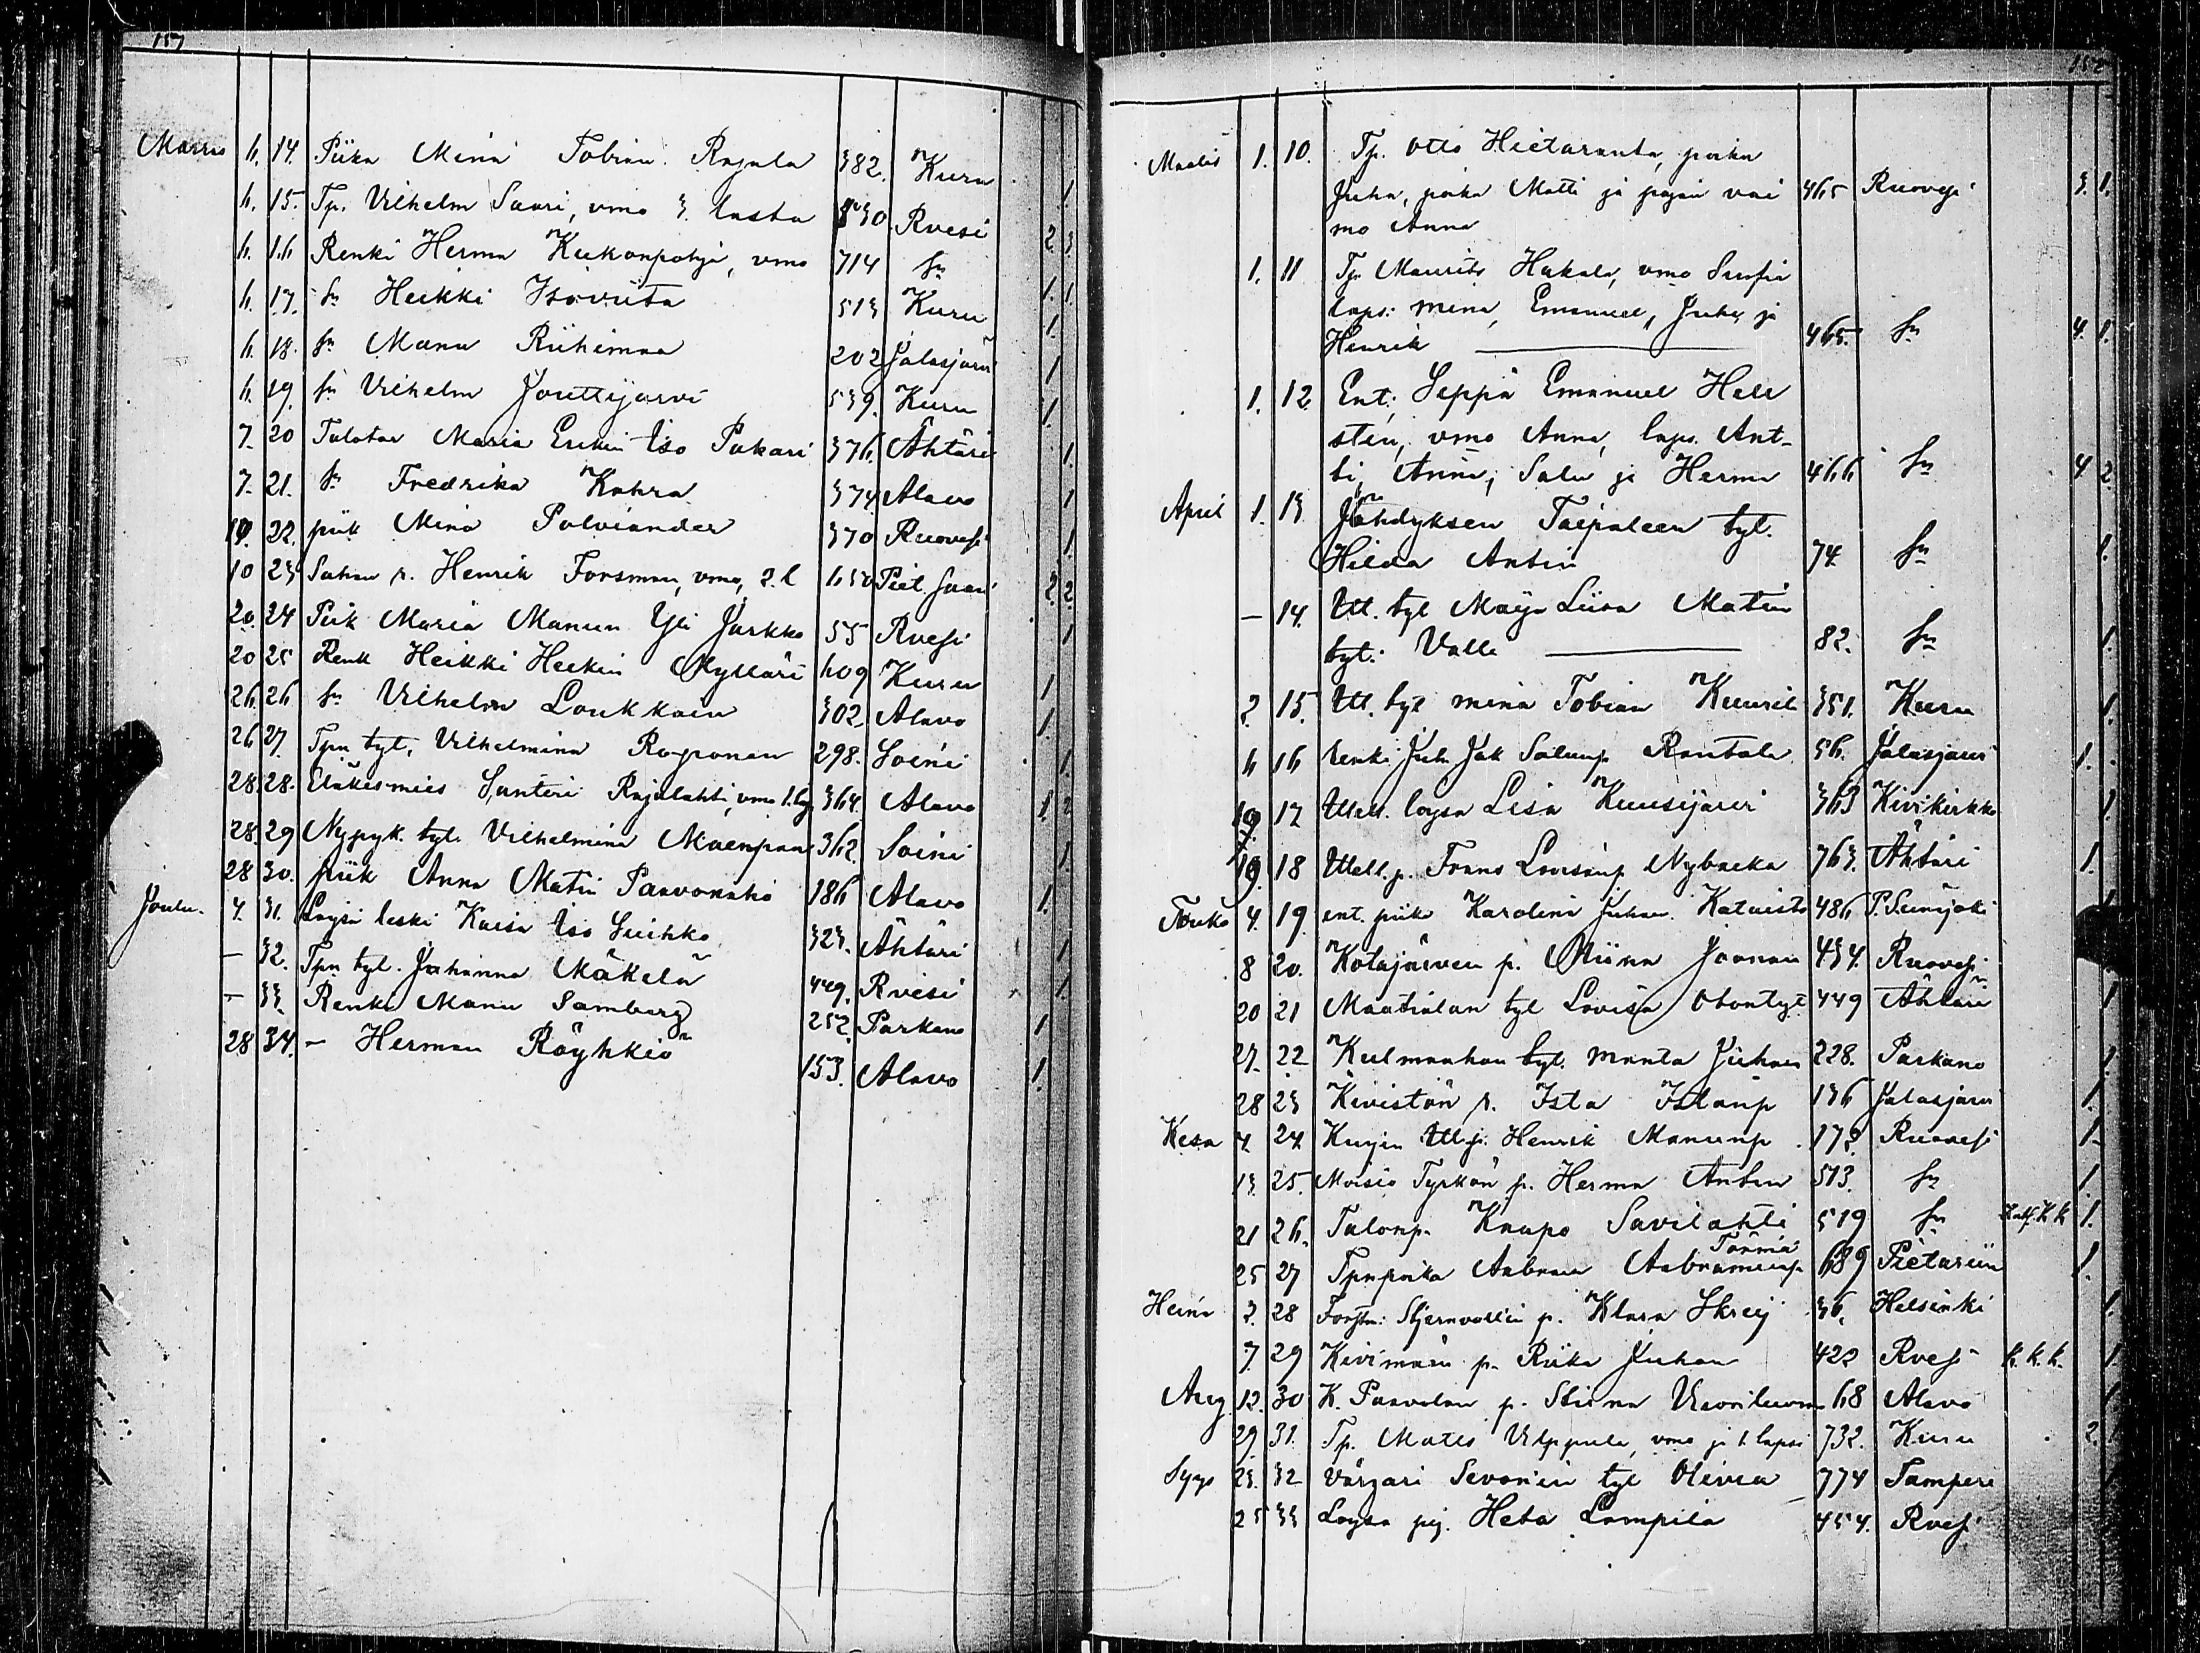 157
Marras 6. 14. Piika Miina Tobian. Rajala 382. Kuru 1
6. 15. Tp. Vilhelm Saari, vmo 3. lasta 830 Rvesi 2 3
6. 16 Renki Herma Keikanpohja, vmo 714 sn 1. 1
6. 17. sn Heikki Isoviita 513 Kuru 1.
6. 18. sn Manu Riihimaa 202 Jalasjärvi 1
6. 19. sn Vilhelm Jouttijärvi 539. Kuru 1.
7. 20 Talotar Maria Erikin Iso Pakari 376. Ähtäri 1.
7. 21. sn Fredrika Kahra 374 Alavo 1
10. 22. piik Mina Polviander 370 Ruovesi 1.
10 23 Sahan r. Henrik Forsman, vmo, 2. l 650 Piet. Saari 2. 2.
20. 24 Piik Maria Manun Yli Jarkko 55 Rvesi 1
20 25 Renk Heikki Heikin Mylläri 609 Kuru 1
26. 26 sn Vilhelm Loukkain 302. Alavo 1.
26 27. Tpn tyt. Vilhelmina Raponen 298. Soini 1.
28. 28. Eläkesmies Santeri Rajalahti, vmo 1. ly 364. Alavo 1 2
28. 29 Nypyk. tyt. Vilhelmina Maenpaa 362. Soini 1.
28 30. piik Anna Matin Paavonaho 186 Alavo 1.
Joulu. 4. 31. Loysä leski Kaisa Iso Suihko 323. Ähtäri 1
— 32. Tpn tyt. Johanna Mäkelä 449. Rvesi 1.
— 33. Renki Manu Samberg 252. Parkano 1
28 34. — Herman Röyhkiö 153. Alavo 1.
158
Maalis 1. 10. Tp. Otto Hietaranta, poika
Juha, poika Matti ja pojan vai 465 Ruovesi 3. 1.
mo Anna
1. 11 Tp. Maurits Hakala, vmo Serafia
laps: Mina, Emanuel, Juha ja
Henrik 465. sn 4. 1.
1. 12. Ent. Seppä Emanuel Hell
stén, vmo Anna, laps. Ant-
ti, Anna, Salu ja Herma 466 sn 4 2.
April 1. 13 Jähdyksen Taipaleen tyt.
Hilda Antin 74 sn 1.
— 14. Itl. tyt Maija Liisa Matin
tyt. Valli 82. sn 1.
2. 15. Itl. tyt Mina Tobian Kuusik 351. Kuru 1.
6 16 renki Juh. Jak Salunp Rantala 56. Jalasjärvi 1.
19 17 Itsell. loysä Lisa Kuusijärvi 363 Kivikirkko 1.
19. 18 Itsell. p. Frans Lovisanp Nybacka 763. Ähtäri 1.
Touko 4. 19. ent. piika Karolina Juhan. Katvisto 486 P. Seinäjoki 1
8 20. Kotajärven p. Miina Joonan 434. Ruovesi
20 21 Maatialan tyt Lovisa Otontyt 449 Ähtäri 1
27. 22 Kulmanhan tyt. Manta Juhan 228. Parkano 1.
28 23 Kivistön r. Ista Istanp 136 Jalasjärvi 1.
Kesä 4. 24 Kujin Itllj. Henrik Manunp. 172. Ruovesi 1.
13. 25. Moisio Tyrkön p. Herma Antin 513. sn 1.
21 26. Talonp. Knapo Savilahti 519 sn 1.
25 27 Tpnpoika Aabram Aabramunp Törmä 689 Pietariin 1.
Heinä 2. 28 Forstm: Stjernvallin p. Klara Skreij 36. Helsinki 1.
7 29 Kivimäen p. Riika Juhan 422 Rvesi k. k. k. 1.
Aug. 12. 30 K. Paavolan p. Stiina Vaorileuva 68 Alavo 1
29. 31. Tp. Matts Vilppula, vmo ja 1. lapsi 732. Kuru 2. 1
Syys 23. 32 Värjäri Sevonin tyt Olivia 774 Tampere 1
25 33 Loysa pij. Heta Lampila 454. Rvesi